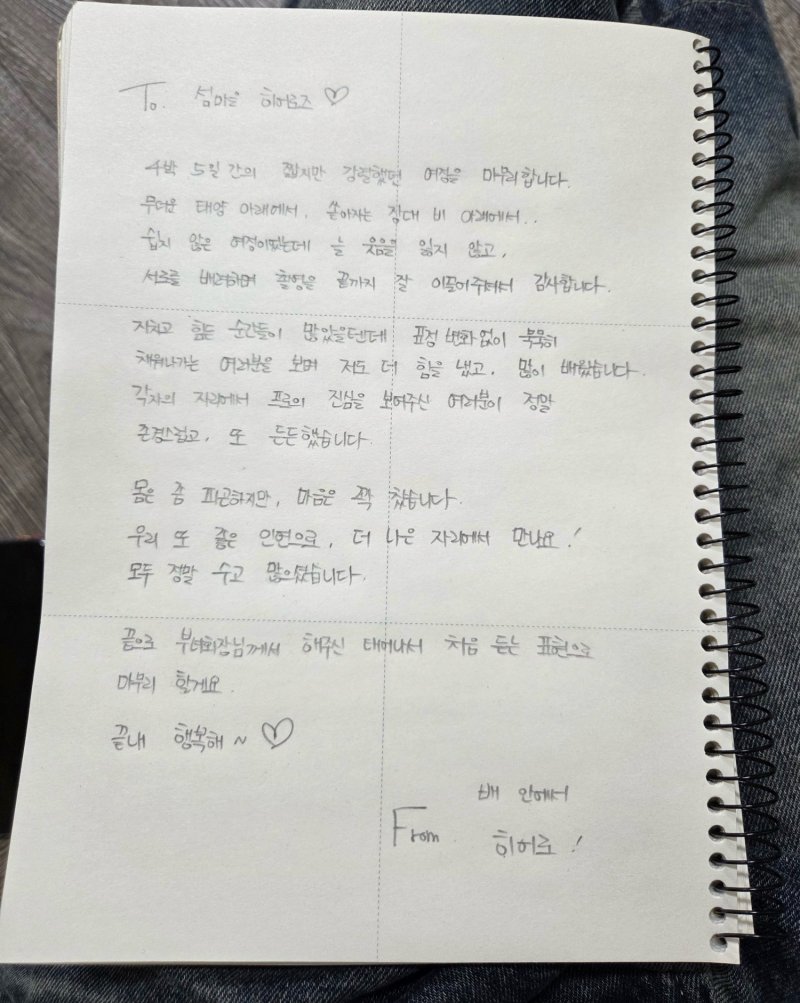 To. 섬마을 히어로즈 ♡
4박 5일 간의 짧지만 강렬했던 여정을 마무리합니다.
무더운 태양 아래에서, 쏟아지는 장대 비 아래에서..
쉽지 않은 여정이었는데 늘 웃음을 잃지 않고,
서로를 배려하며 촬영을 끝까지 잘 이끌어주셔서 감사합니다.
지치고 힘든 순간들이 많았을텐데 표정 변화 없이 묵묵히
채워나가는 여러분을 보며 저도 더 힘을 냈고, 많이 배웠습니다.
각자의 자리에서 프로의 진심을 보여주신 여러분이 정말
존경스럽고, 또 든든했습니다.
몸은 좀 피곤하지만, 마음은 꽉 찼습니다.
우리 또 좋은 인연으로, 더 나은 자리에서 만나요!
모두 정말 수고 많으셨습니다.
끝으로 부녀회장님께서 해주신 태어나서 처음 듣는 표현으로
마무리 할게요.
끝내 행복해 ~ ♡
배 안에서
From 히어로!